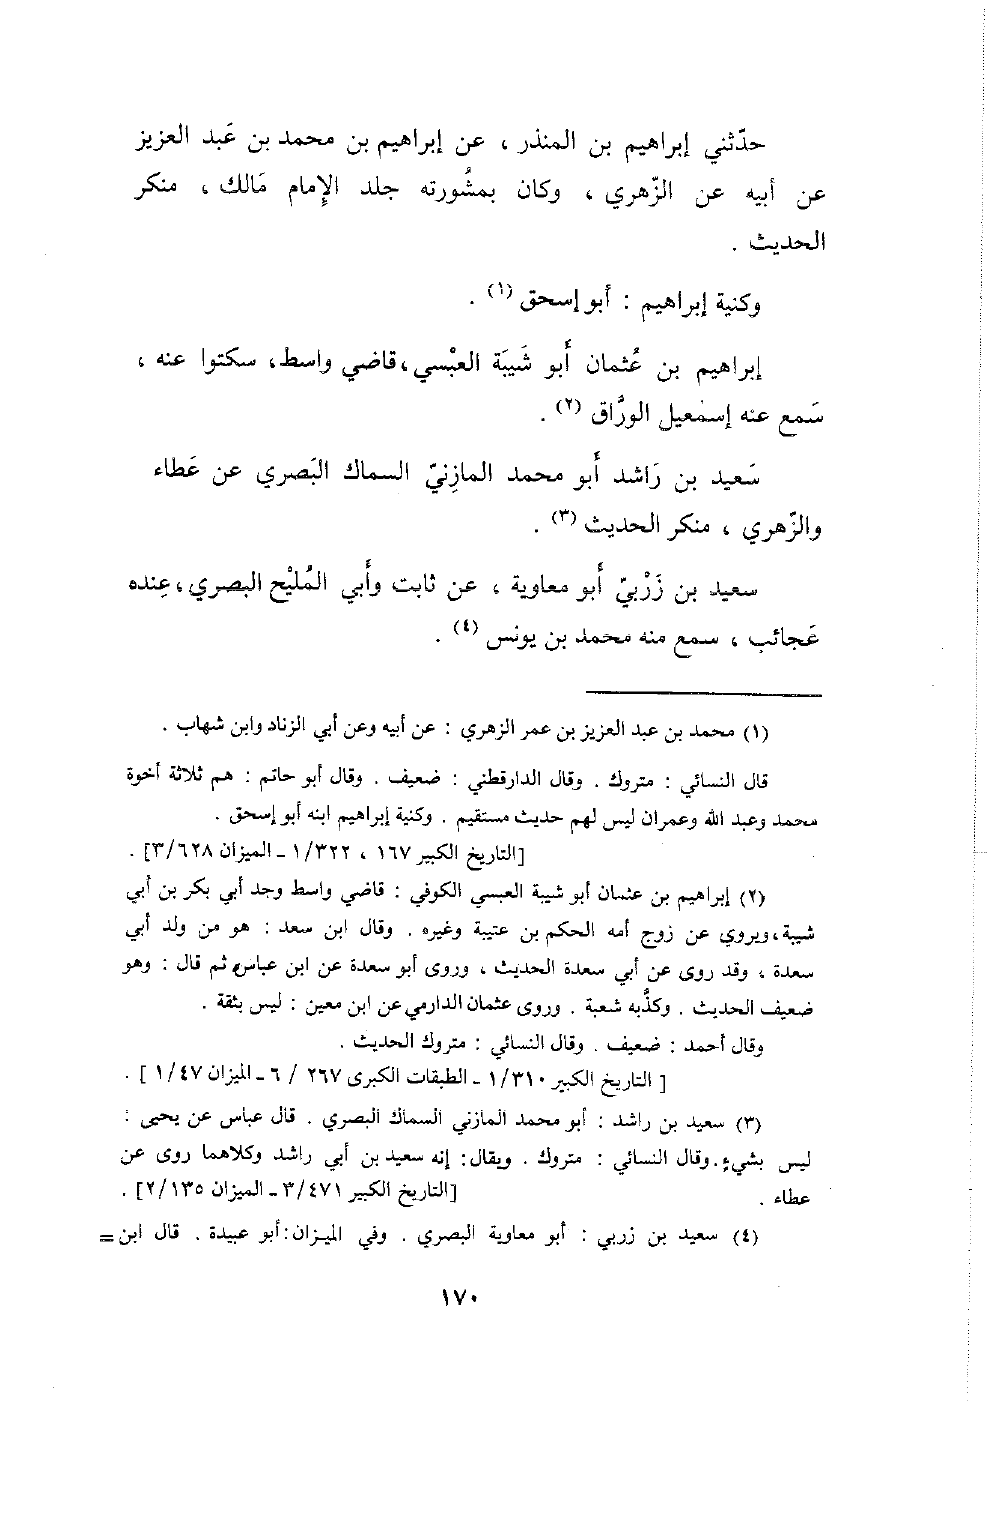 حدّثني إبراهيم بن المنذر ، عن إبراهيم بن محمد بن عَبد العزيز
عن أبيه عن الزّهري ، وكان بمشُورته جلد الإمام مَالك ، منكر
الحديث .
وكنية إبراهيم : أَبو إسحق (١) .
إبراهيم بن عُثمان أَبو شَيبَة العبْسي ، قاضي واسط ، سكتوا عنه ،
سَمع عنه إسمٰعيل الورَّاق (٢) .
سَعيد بن رَاشد أَبو محمد المازِنيّ السماك البَصري عن عَطاء
والزّهري ، منكر الحديث (٣) .
سعيد بن زَرْبيّ أَبو معاوية ، عن ثابت وأَبي المُليْح البصري ، عِنده
عَجائب ، سمع منه محمد بن يونس (٤) .
(١) محمد بن عبد العزيز بن عمر الزهري : عن أبيه وعن أبي الزناد وابن شهاب .
قال النسائي : متروك . وقال الدارقطني : ضعيف . وقال أبو حاتم : هم ثلاثة أخوة
محمد وعبد الله وعمران ليس لهم حديث مستقيم . وكنية إبراهيم ابنه أبو إسحق .
[التاريخ الكبير ١٦٧ ، ١/٣٢٢ ـ الميزان ٣/٦٢٨] .
(٢) إبراهيم بن عثمان أبو شيبة العبسي الكوفي : قاضي واسط وجد أبي بكر بن أبي
شيبة ، ويروي عن زوج أمه الحكم بن عتيبة وغيره . وقال ابن سعد : هو من ولد أبي
سعدة ، وقد روى عن أبي سعدة الحديث ، وروى أبو سعدة عن ابن عباس ثم قال : وهو
ضعيف الحديث . وكذَّبه شعبة . وروى عثمان الدارمي عن ابن معين : ليس بثقة .
وقال أحمد : ضعيف . وقال النسائي : متروك الحديث .
[ التاريخ الكبير ١/٣١٠ ـ الطبقات الكبرى ٢٦٧ / ٦ ـ الميزان ١/٤٧ ] .
(٣) سعيد بن راشد : أبو محمد المازني السماك البصري . قال عباس عن يحيى :
ليس بشيءٍ . وقال النسائي : متروك . ويقال : إنه سعيد بن أبي راشد وكلاهما روى عن
عطاء . [التاريخ الكبير ٣/٤٧١ ـ الميزان ٢/١٣٥] .
(٤) سعيد بن زربي : أبو معاوية البصري . وفي الميزان : أبو عبيدة . قال ابن =
١٧٠